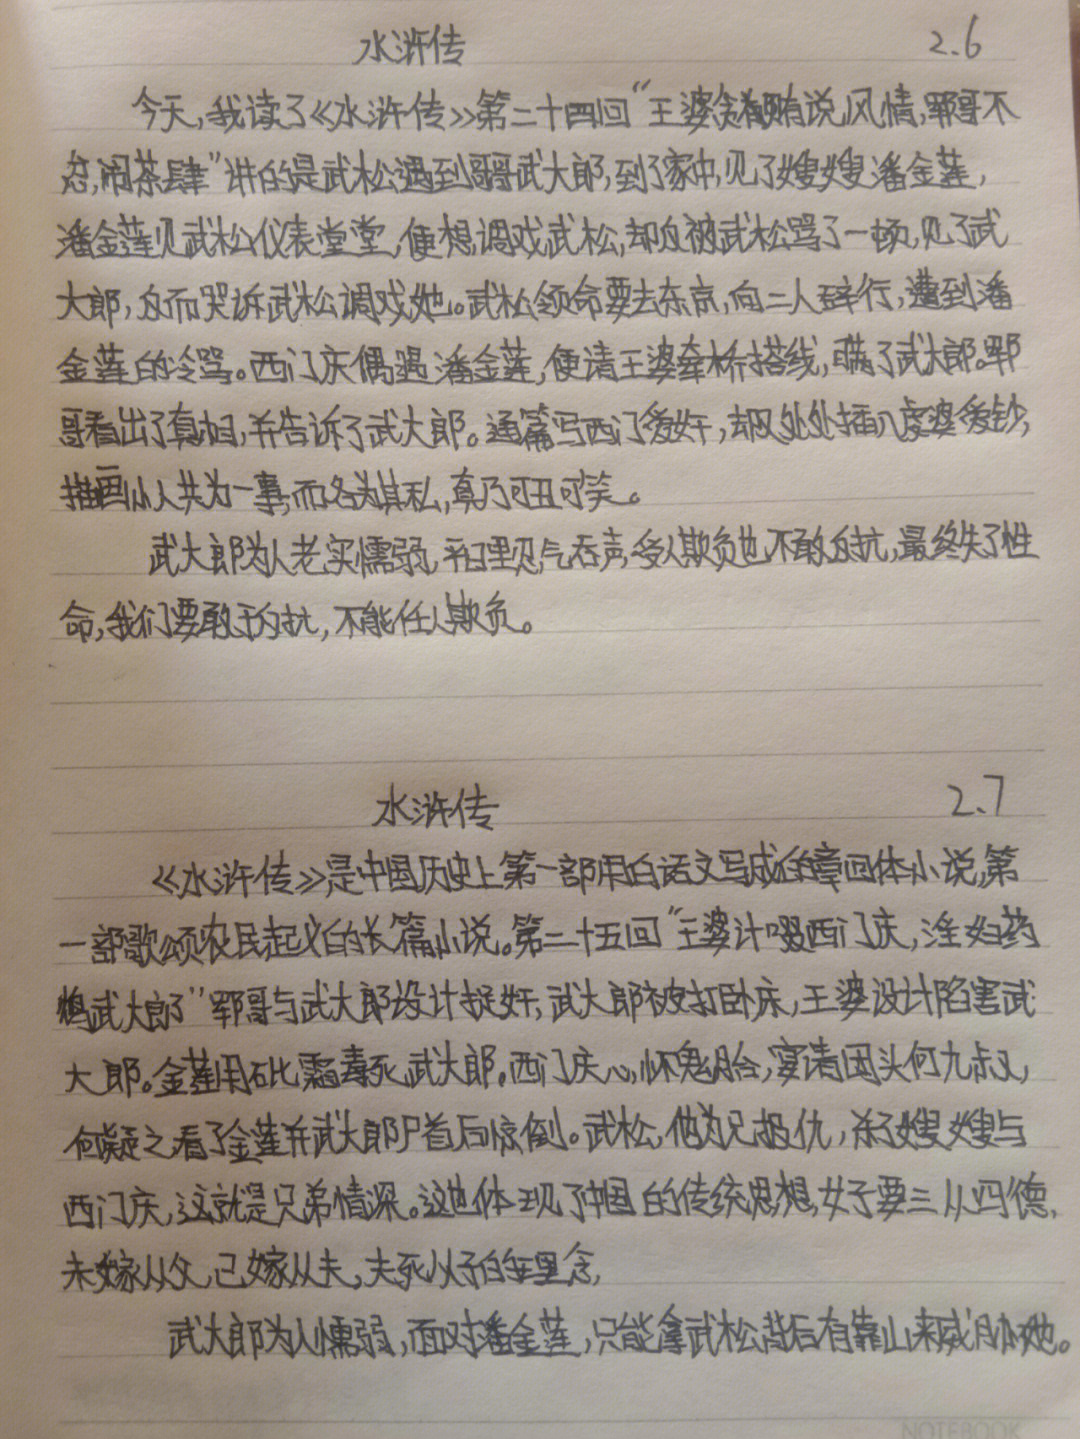 水浒传 2.6
今天,我读了《水浒传》第二十四回“王婆贪贿说风情,郓哥不
忿闹茶肆”讲的是武松遇到哥哥武大郎,到了家中,见了嫂嫂潘金莲,
潘金莲见武松仪表堂堂,便想调戏武松,却反被武松骂了一顿,见了武
大郎,反而哭诉武松调戏她。武松领命要去东京,向二人辞行,遭到潘
金莲的冷骂。西门庆偶遇潘金莲,便请王婆牵桥搭线,瞒了武大郎。郓
哥看出了真相,并告诉了武大郎。通篇写西门爱奸,却又处处插入虔婆爱钞,
描画小人共为一事,而各为其私,真乃可丑可笑。
武大郎为人老实懦弱,平日里忍气吞声,受人欺负也不敢反抗,最终失了性
命,我们要敢于反抗,不能任人欺负。
水浒传 2.7
《水浒传》是中国历史上第一部用白话文写成的章回体小说,第
一部歌颂农民起义的长篇小说。第二十五回“王婆计啜西门庆,淫妇药
鸩武大郎”郓哥与武大郎设计捉奸,武大郎被打卧床,王婆设计陷害武
大郎。金莲用砒霜毒死武大郎,西门庆心怀鬼胎,宴请团头何九叔,
何疑之看了金莲并武大郎尸首后惊倒。武松,他为兄报仇,杀了嫂嫂与
西门庆,这就是兄弟情深。这也体现了中国的传统思想,女子要三从四德,
未嫁从父,已嫁从夫,夫死从子的理念,
武大郎为人懦弱,面对潘金莲,只能拿武松背后有靠山来威胁她。
NOTEBOOK